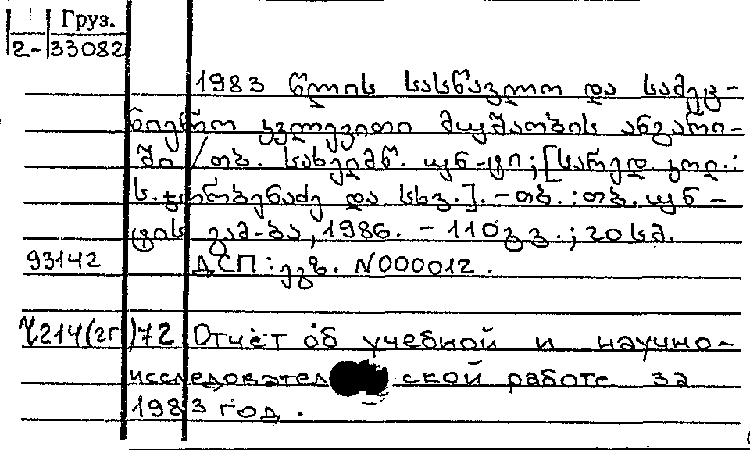 Груз.
2- 33082
1983 წლის სასწავლო და სამეც-
ნიერო კვლევითი მუშაობის ანგარი-
ში / თბ. სახელმწ. უნ-ტი; [სარედ. კოლ.:
ს. ჯორბენაძე და სხვ.]. - თბ. : თბ. უნ-
ტის გამ-ბა, 1986. - 110 გვ. ; 20 სმ.
93142 ДСП: ეგზ. N000012.
214(2Г)72 Отчёт об учебной и научно-
исследовательской работе за
1983 год.